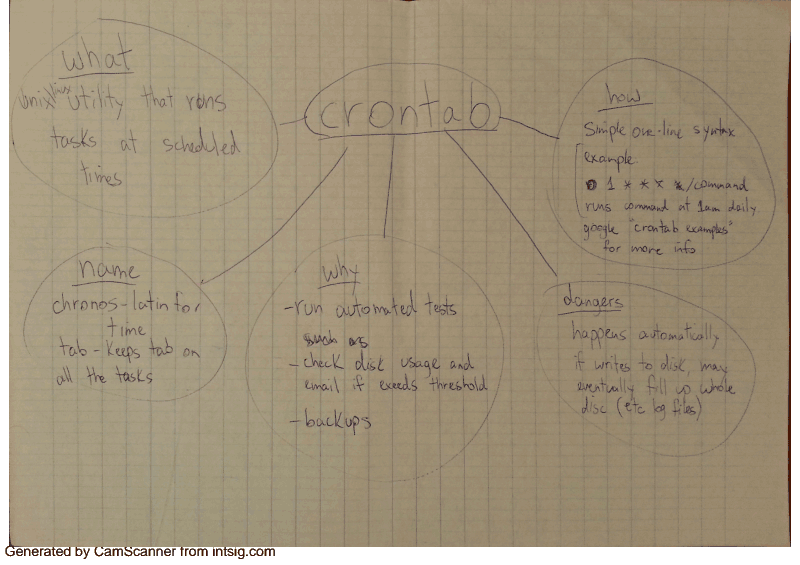 crontab
what
Unix/linux utility that runs
tasks at scheduled
times
how
Simple one-line syntax
example
0 1 * * * /command
runs command at 1am daily
google "crontab examples"
for more info
name
chronos - latin for
time
tab - keeps tab on
all the tasks
why
- run automated tests
such as
- check disk usage and
email if exceeds threshold
- backups
dangers
happens automatically
if writes to disk, may
eventually fill up whole
disc (etc log files)
Generated by CamScanner from intsig.com